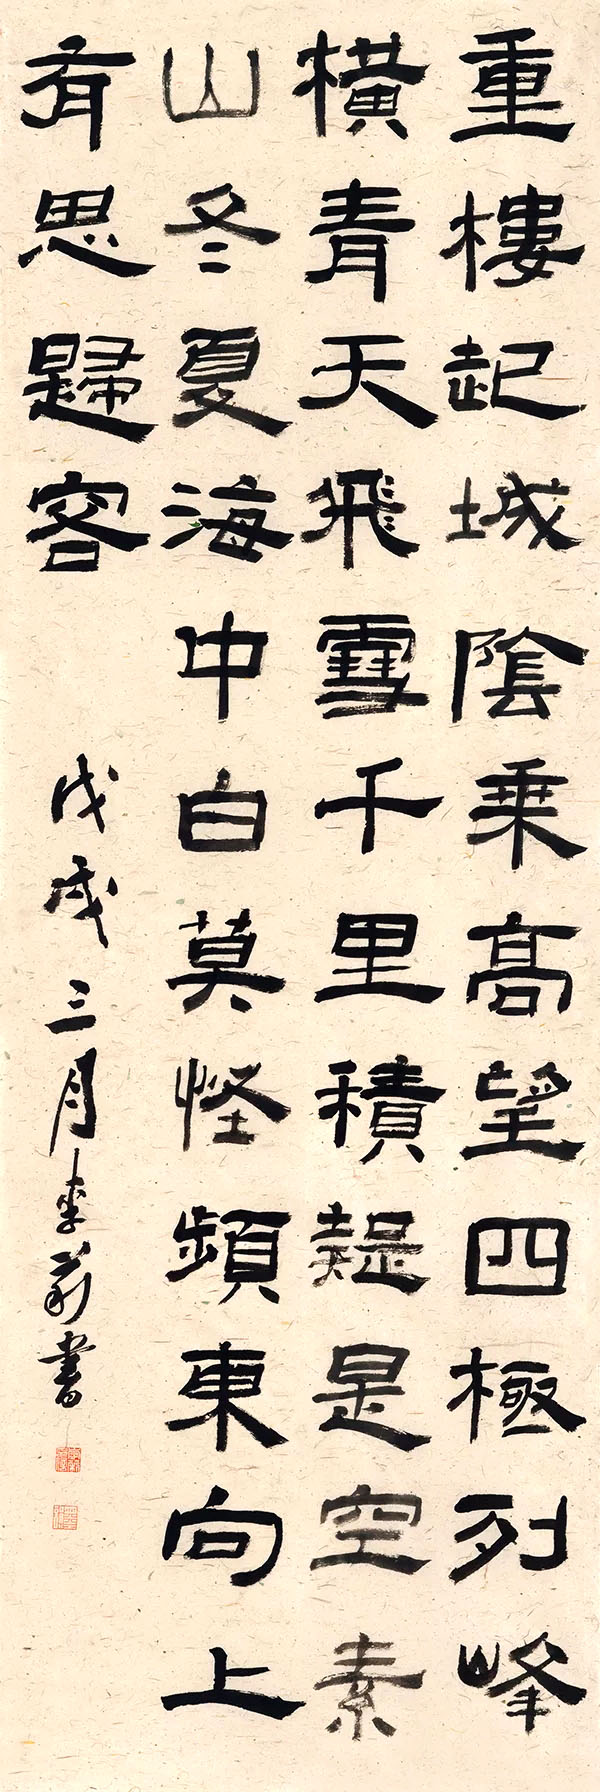 重樓起城陰乘高望四極列峰
橫青天飛雪千里積疑是空素
山冬夏海中白莫怪頻東向上
有思歸客
戊戌三月李書